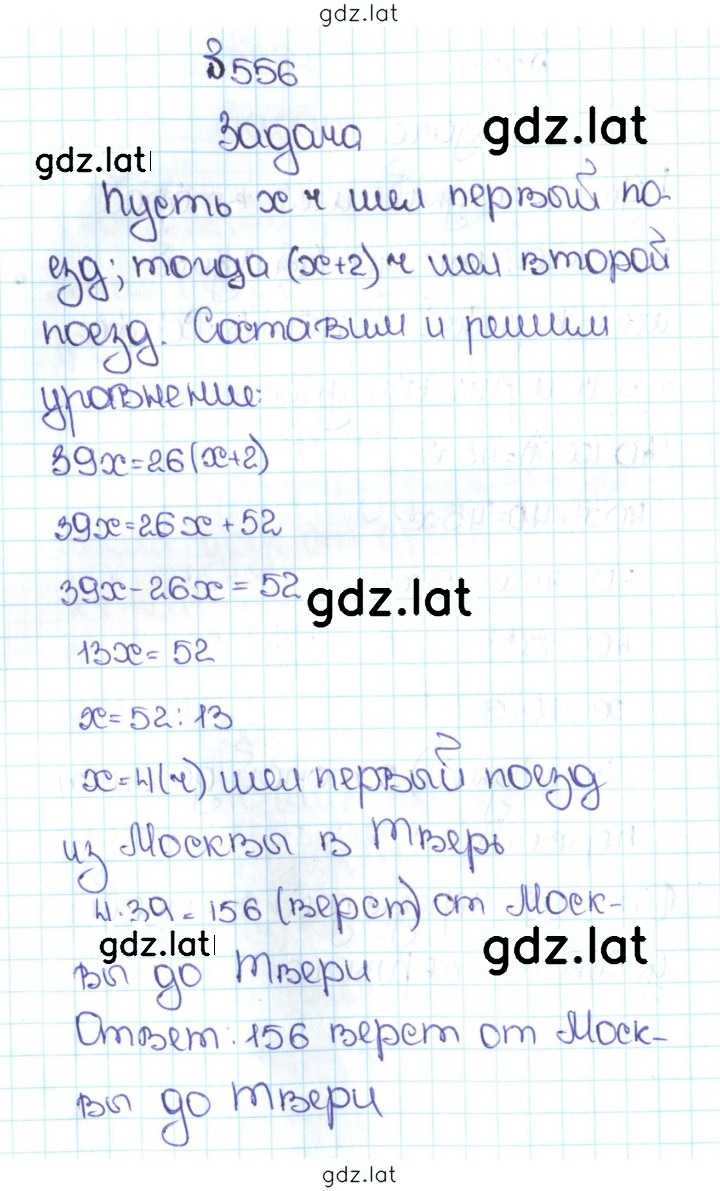 gdz.lat
№556
Задача gdz.lat
gdz.lat
Пусть x ч шел первый по-
езд; тогда (x+2) ч шел второй
поезд. Составим и решим
уравнение:
39x=26(x+2)
39x=26x+52
39x-26x=52
gdz.lat
13x=52
x=52:13
x=4(ч) шел первый поезд
из Москвы в Тверь
4·39=156 (верст) от Моск-
gdz.lat gdz.lat
вы до Твери
Ответ: 156 верст от Моск-
вы до Твери
gdz.lat